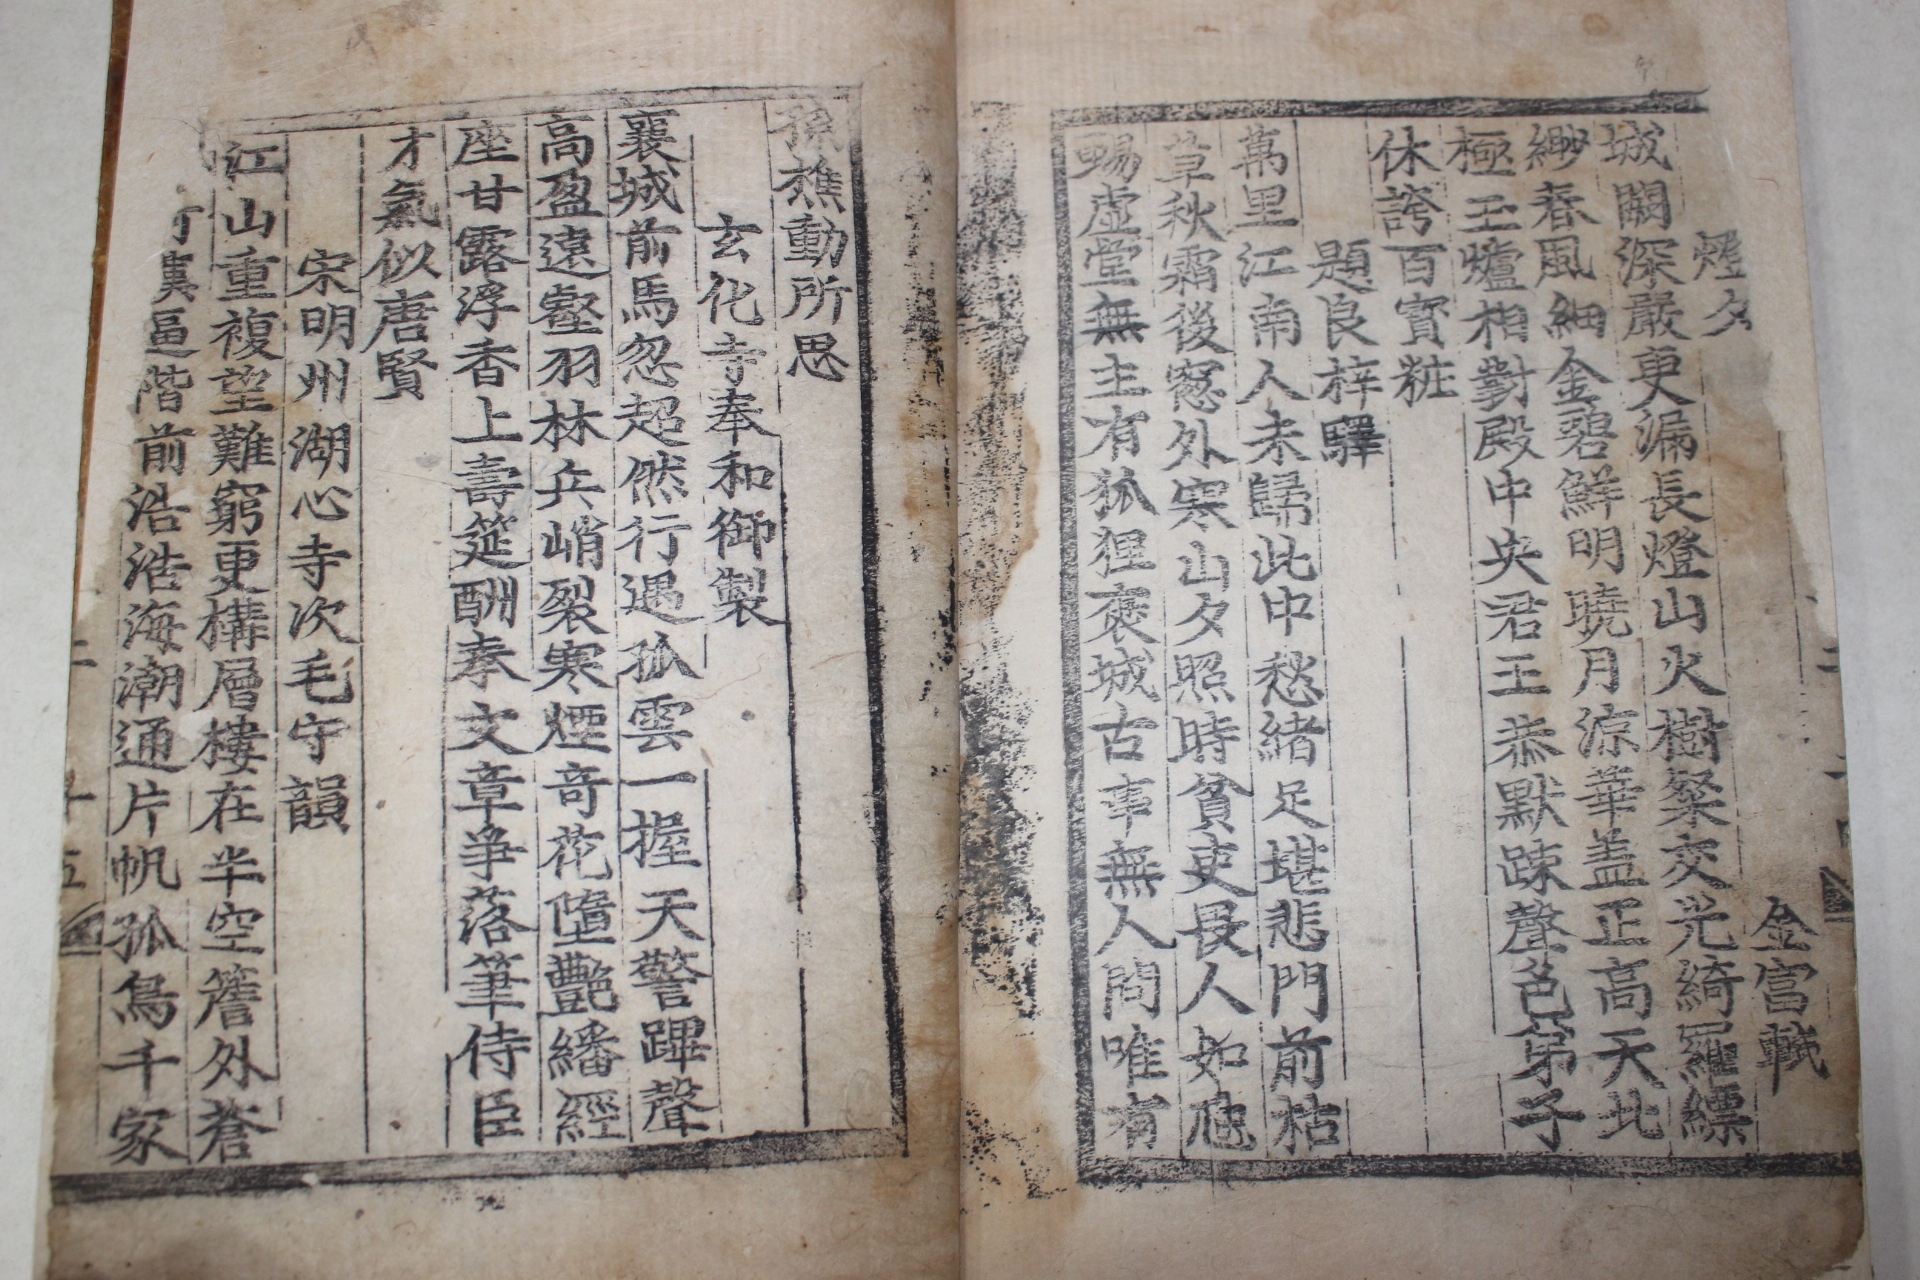 燈夕 金富軾
城闕深嚴更漏長燈山火樹粲交光綺羅縹
緲春風細金碧鮮明曉月凉華盖正高天北
極玉爐相對殿中央君王恭默踈聲色弟子
休誇百寶粧
題良梓驛
萬里江南人未歸此中愁緖足堪悲門前枯
草秋霜後窓外寒山夕照時貧吏畏人如虺
蜴虛堂無主有狐狸褒城古事無人問唯有
孫樵動所思
玄化寺奉和御製
襄城前馬忽超然行遇孤雲一握天警蹕聲
高盈遠壑羽林兵峭裂寒煙奇花墮艶繙經
座甘露浮香上壽筵酬奏文章爭落筆侍臣
才氣似唐賢
宋明州湖心寺次毛守韻
江山重複望難窮更構層樓在半空簷外蒼
漢逼階前浩浩海潮通片帆孤鳥千家